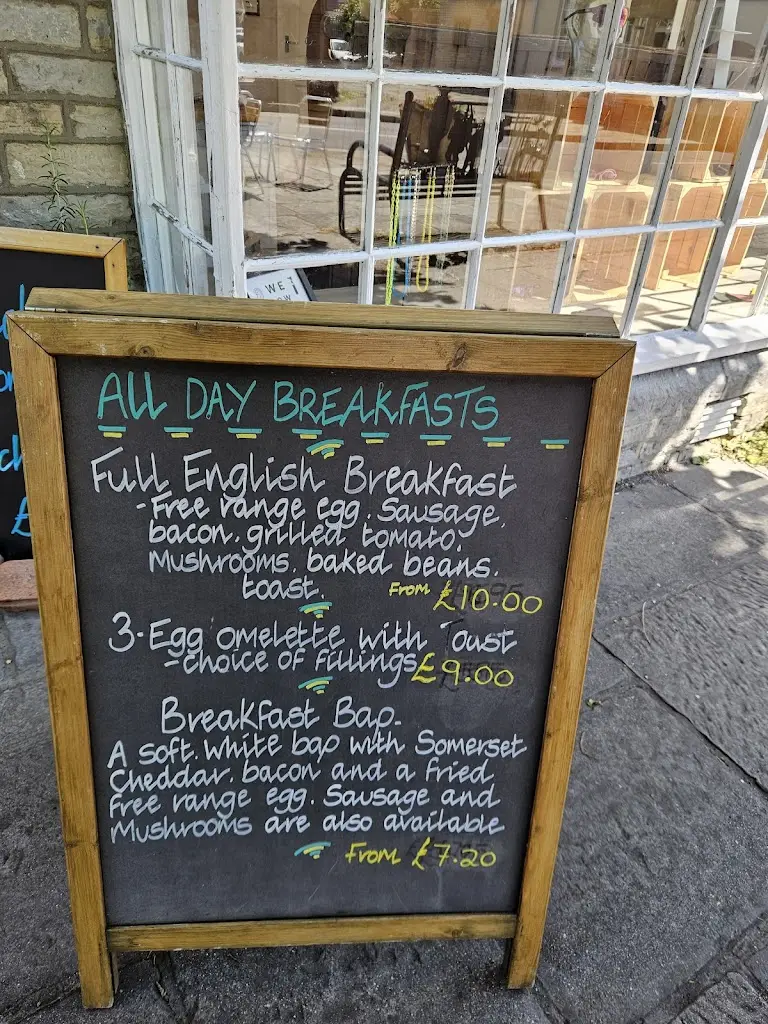 WE
ALL DAY BREAKFASTS
Full English Breakfast
-Free range egg, Sausage,
bacon, grilled tomato,
Mushrooms, baked beans,
toast.
From £10.00
3-Egg omelette with Toast
-choice of fillings £9.00
Breakfast Bap-
A soft, white bap with Somerset
Cheddar, bacon and a fried
free range egg. Sausage and
Mushrooms are also available
From £7.20
£